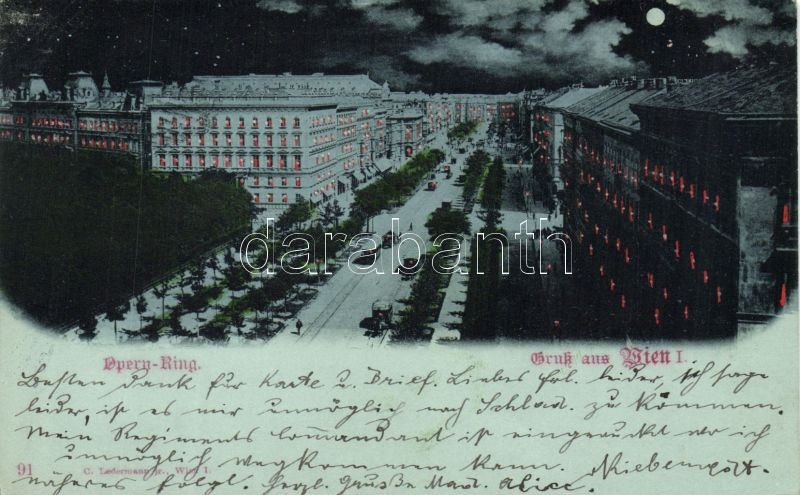 darabanth
Opern-Ring.
Gruß aus Wien I.
Besten Dank für Karte u. Brief. Liebes Frl. leider, ich sage
leider, ist es mir unmöglich nach Schlad. zu kommen.
Mein Regiments Commandant ist eingerückt wo ich
unmöglich wegkommen kann.
91 C. Ledermann jr., Wien I.
näheres folgt. herzl. Grüsse